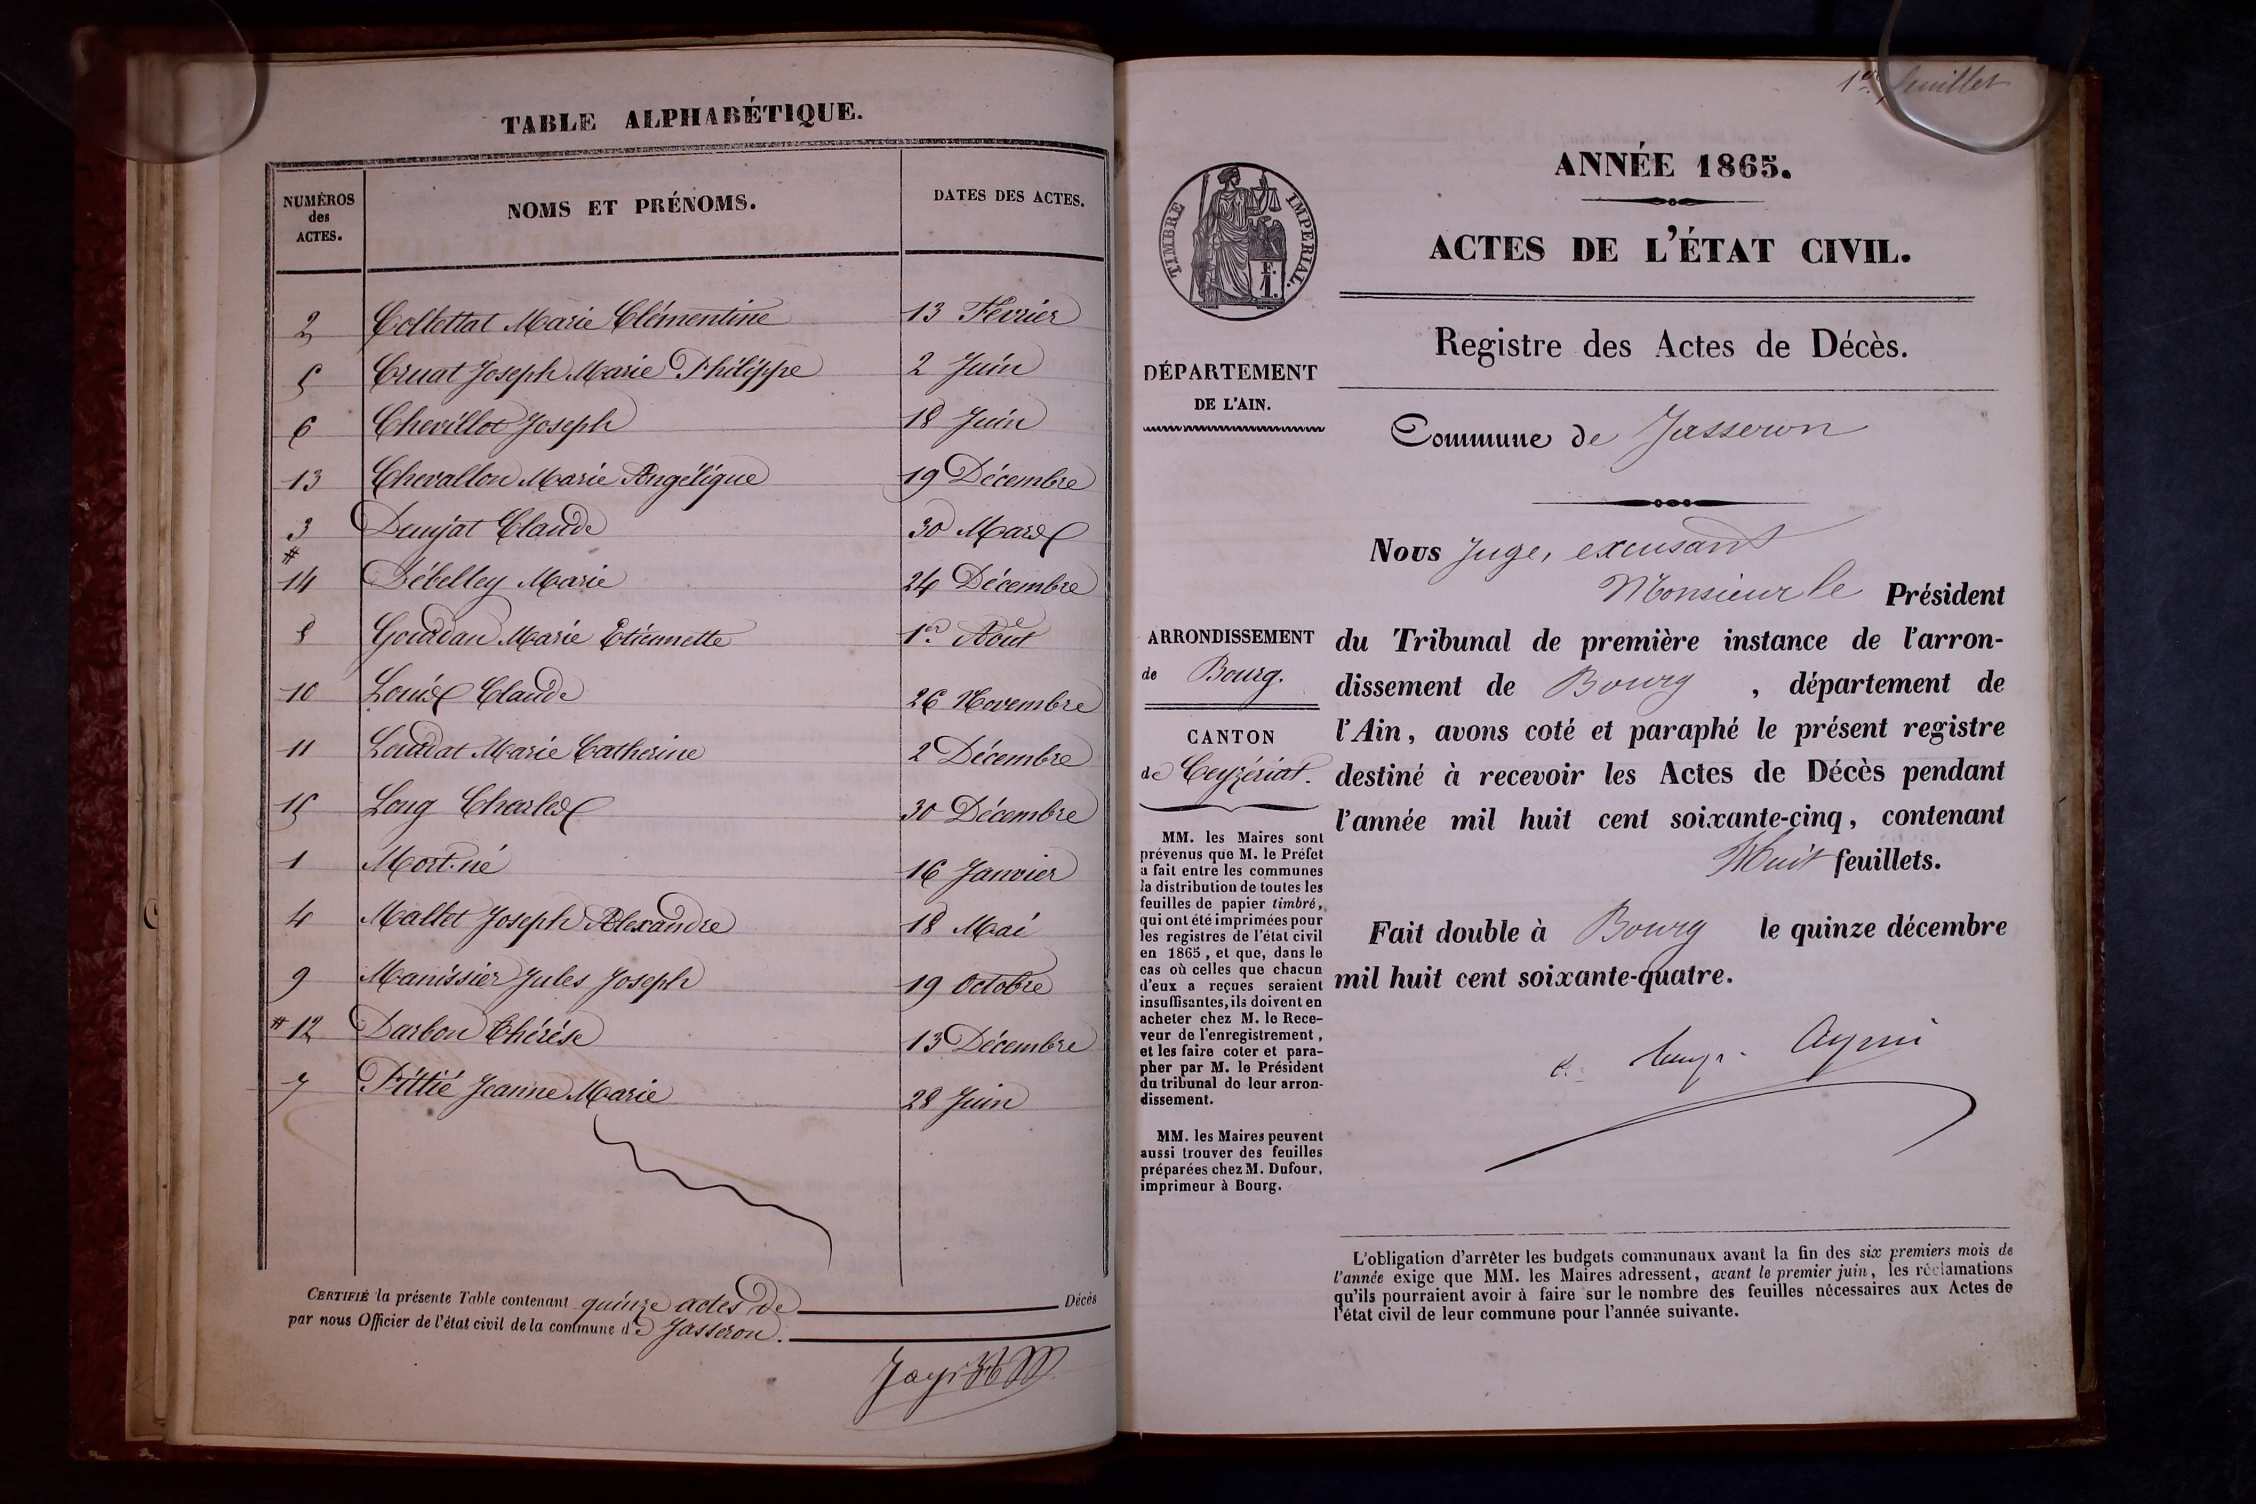 TABLE ALPHABÉTIQUE.
NUMÉROS des ACTES. NOMS ET PRÉNOMS. DATES DES ACTES.
2 Collettat Marie Clémentine 13 Février
5 Cruat Joseph Marie Philippe 2 Juin
6 Chevillot Joseph 18 Juin
13 Chevallon Marie Angélique 19 Décembre
3 Claude 30 Mars
#
14 Débelley Marie 24 Décembre
8 Marie Etiennette 1er Août
10 Louis Claude 26 Novembre
11 Loudat Marie Catherine 2 Décembre
15 Long Charles 30 Décembre
1 Mort-né 16 Janvier
4 Mallet Joseph Alexandre 18 Mai
9 Manissier Jules Joseph 19 Octobre
# 12 Darbon Thérèse 13 Décembre
7 Pittié Jeanne Marie 28 Juin
CERTIFIÉ la présente Table contenant quinze actes de Décès
par nous Officier de l'état civil de la commune de Jasseron.
1er feuillet
ANNÉE 1865.
ACTES DE L'ÉTAT CIVIL.
Registre des Actes de Décès.
Commune de Jasseron
TIMBRE IMPÉRIAL.
F.
1.
DÉPARTEMENT
DE L'AIN.
ARRONDISSEMENT
de Bourg.
CANTON
de Ceyzériat.
MM. les Maires sont
prévenus que M. le Préfet
a fait entre les communes
la distribution de toutes les
feuilles de papier timbré,
qui ont été imprimées pour
les registres de l'état civil
en 1865, et que, dans le
cas où celles que chacun
d'eux a reçues seraient
insuffisantes, ils doivent en
acheter chez M. le Rece-
veur de l'enregistrement,
et les faire coter et para-
pher par M. le Président
du tribunal de leur arron-
dissement.
MM. les Maires peuvent
aussi trouver des feuilles
préparées chez M. Dufour,
imprimeur à Bourg.
Nous Juge, excusant
Monsieur le Président
du Tribunal de première instance de l'arron-
dissement de Bourg, département de
l'Ain, avons coté et paraphé le présent registre
destiné à recevoir les Actes de Décès pendant
l'année mil huit cent soixante-cinq, contenant
Huit feuillets.
Fait double à Bourg le quinze décembre
mil huit cent soixante-quatre.
L'obligation d'arrêter les budgets communaux avant la fin des six premiers mois de
l'année exige que MM. les Maires adressent, avant le premier juin, les réclamations
qu'ils pourraient avoir à faire sur le nombre des feuilles nécessaires aux Actes de
l'état civil de leur commune pour l'année suivante.